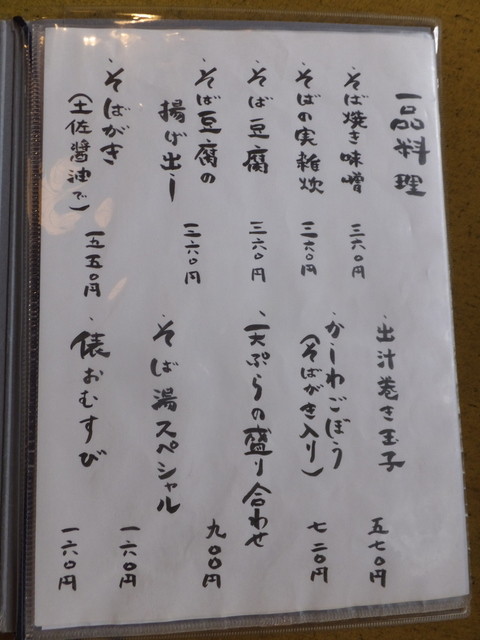 一品料理
・そば焼き味噌
三六〇円
・そばの実雑炊
三六〇円
・そば豆腐
三六〇円
・そば豆腐の
揚げ出し
三六〇円
・そばがき
(土佐醤油で)
一五五〇円
・出汁巻き玉子
五七〇円
・かしわごぼう
(そばがき入り)
七二〇円
・天ぷらの盛り合わせ
九〇〇円
・そば湯スペシャル
一六〇円
・俵おむすび
一六〇円